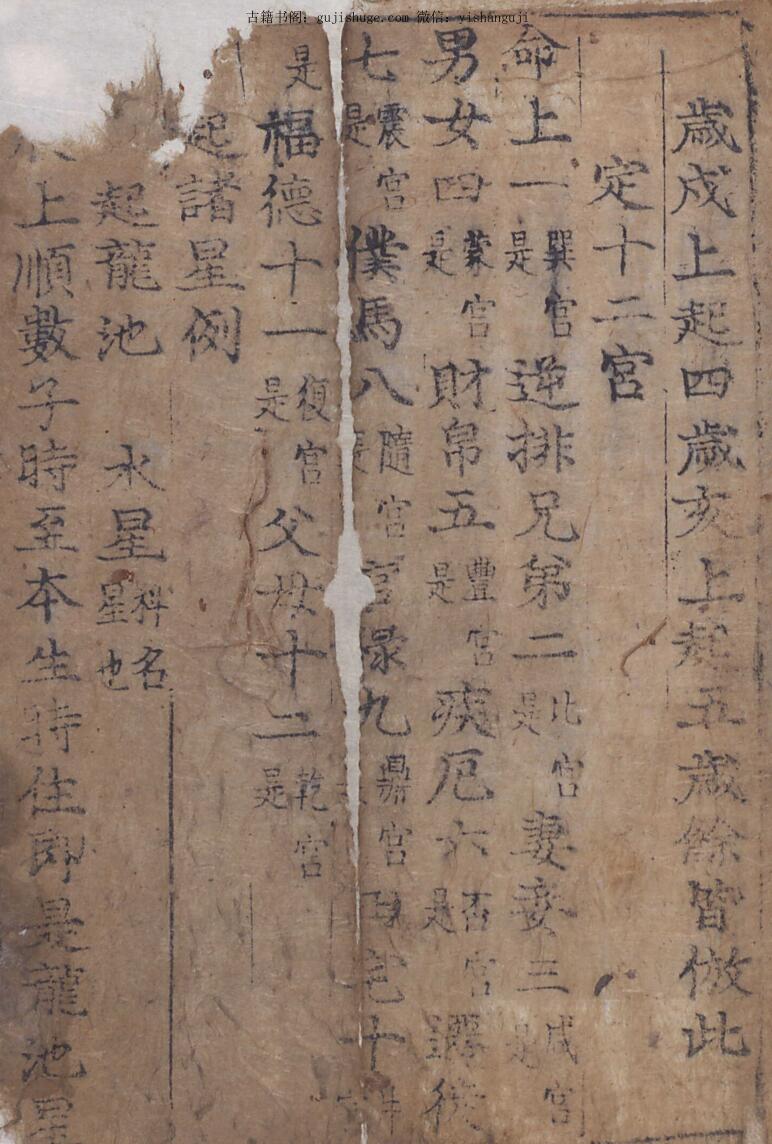 古籍书阁: gujishuge.com 微信: yishanguji
歲戌上起四歲亥上起五歲餘皆倣此
定十二宮
命上一是巽宮逆排兄第二是比宮妻妾三是咸宮
男女四是蒙宮財帛五是豐宮疾厄六是否宮遷後
七是震宮僕馬八是隨宮官祿九鼎宮宅十
是福德十一是復宮父母十二是乾宮
起諸星例
起龍池 水星科名星也
上順數子時至本生時住即是龍池星